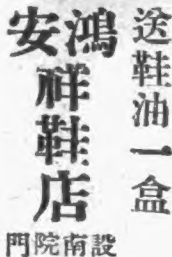 送鞋油一盒
鴻安
祥鞋店
設南院門